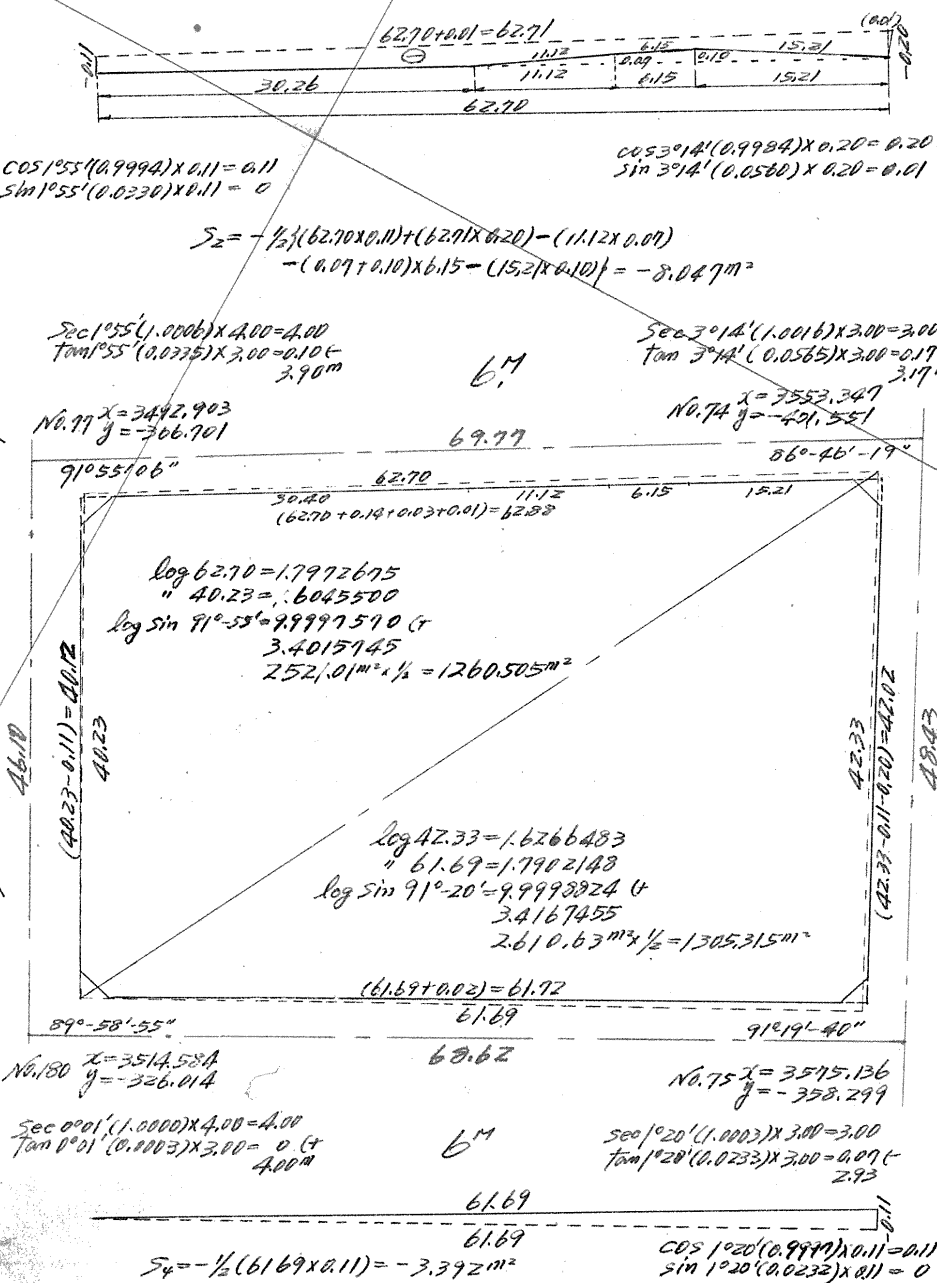 62.70+0.01=62.71
(0.01)
-0.11
⊖
11.12
6.15
15.21
-0.20
30.26
11.12
0.07
6.15
0.10
15.21
62.70
cos1°55'(0.9994)×0.11=0.11
sin1°55'(0.0330)×0.11=0
cos3°14'(0.9984)×0.20=0.20
sin 3°14'(0.0560)×0.20=0.01
S2=-1/2{(62.70×0.11)+(62.71×0.20)-(11.12×0.07)
-(0.07+0.10)×6.15-(15.21×0.10)}=-8.047m²
Sec1°55'(1.0006)×4.00=4.00
tan1°55'(0.0335)×3.00=0.10(-
3.90m
6M
Sec3°14'(1.0016)×3.00=3.00
tan 3°14'(0.0565)×3.00=0.17
3.17
No.77 x=3492.903
y=-366.701
No.74 x=3553.347
y=-401.551
69.77
91°55'06"
86°-46'-19"
62.70
30.40
11.12
6.15
15.21
(62.70+0.14+0.03+0.01)=62.88
log 62.70=1.7972675
" 40.23=1.6045500
log sin 91°-55'=9.9997570 (+
3.4015745
2521.01m²×1/2=1260.505m²
46.10
(40.23-0.11)=40.12
40.23
42.33
(42.33-0.11-0.20)=42.02
48.43
log 42.33=1.6266483
" 61.69=1.7902148
log sin 91°-20'=9.9998824 (+
3.4167455
2.610.63m²×1/2=1305.315m²
(61.69+0.02)=61.72
61.69
89°-58'-55"
91°19'-40"
68.62
No.180 x=3514.584
y=-326.014
No.75 x=3575.136
y=-358.299
Sec 0°01'(1.0000)×4.00=4.00
tan 0°01'(0.0003)×3.00=0 (+
4.00m
6M
sec1°20'(1.0003)×3.00=3.00
tan1°20'(0.0233)×3.00=0.07(-
2.93
61.69
-0.11
61.69
S4=-1/2(61.69×0.11)=-3.392m²
cos 1°20'(0.9997)×0.11=0.11
sin 1°20'(0.0232)×0.11=0